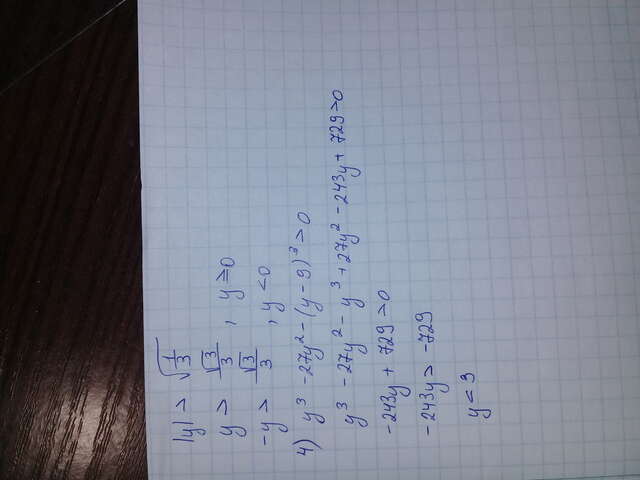 |y| > √(1/3)
y > √3/3 , y ≥ 0
-y > √3/3 , y < 0
4) y³ - 27y² - (y - 9)³ > 0
y³ - 27y² - y³ + 27y² - 243y + 729 > 0
-243y + 729 > 0
-243y > -729
y < 3